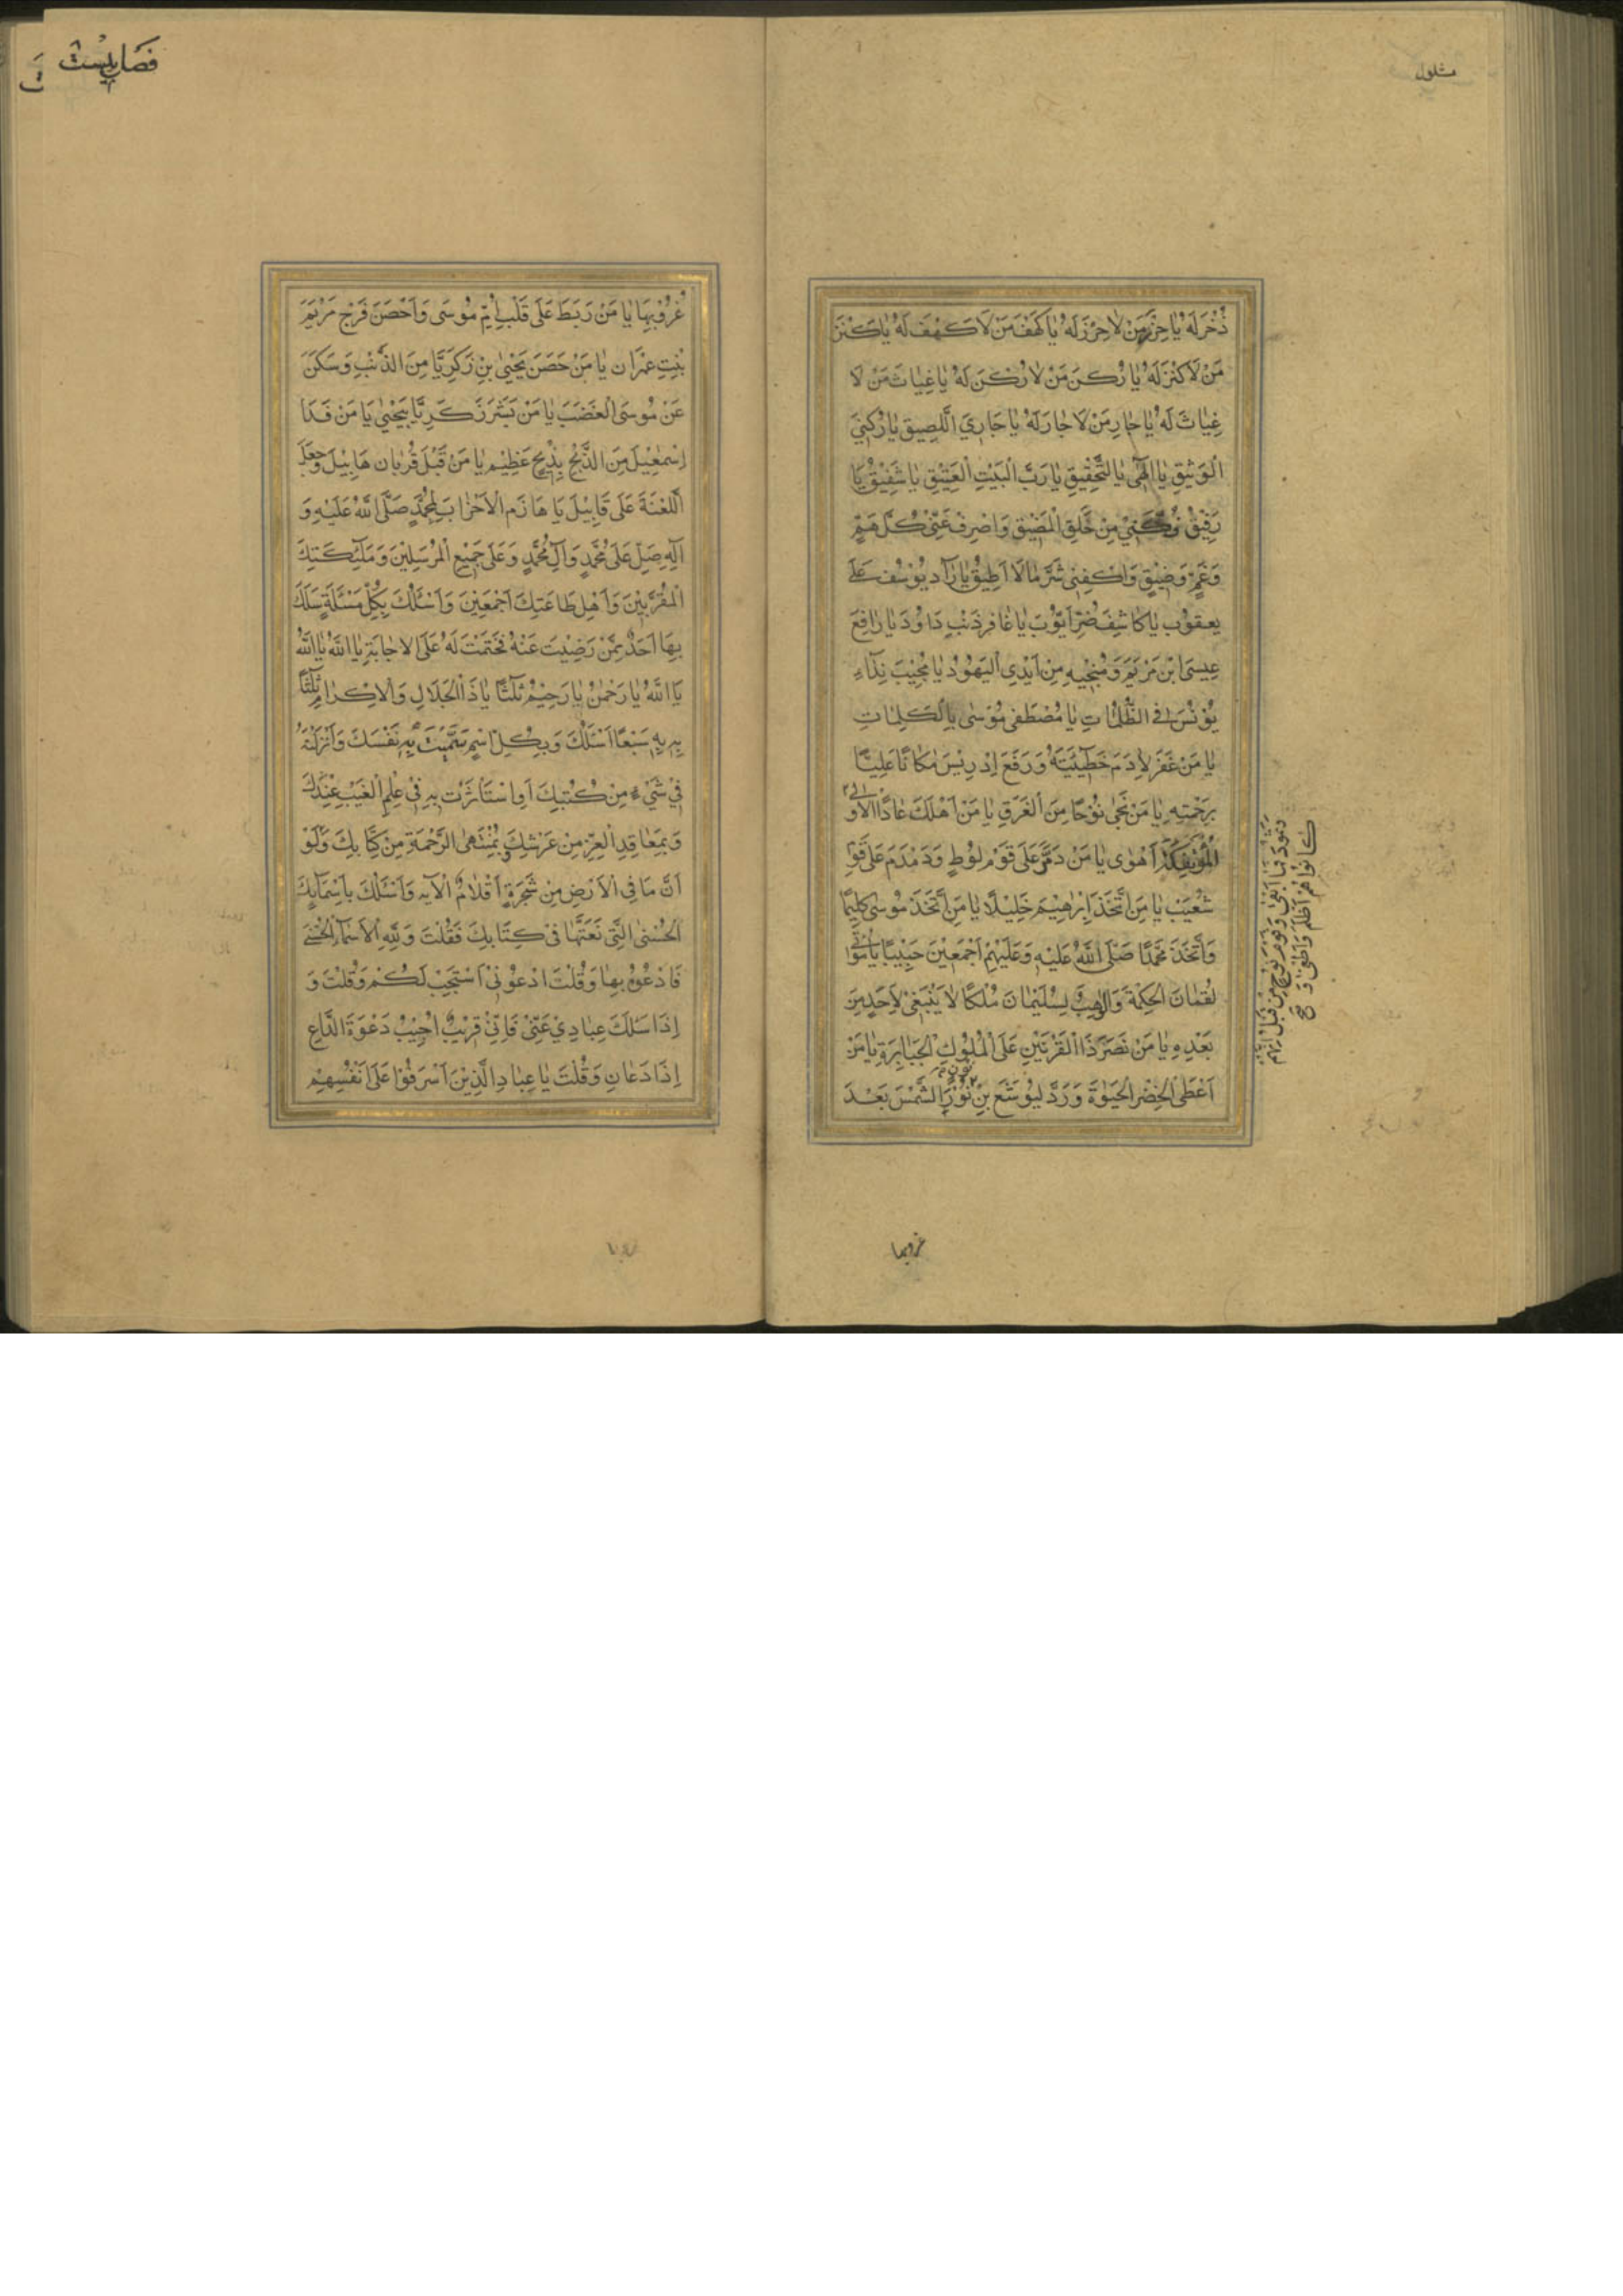 مشلول
ذُخْرَ لَهُ يَا حِرْزَ مَنْ لَا حِرْزَ لَهُ يَا كَهْفَ مَنْ لَا كَهْفَ لَهُ يَا كَنْزَ
مَنْ لَا كَنْزَ لَهُ يَا رُكْنَ مَنْ لَا رُكْنَ لَهُ يَا غِيَاثَ مَنْ لَا
غِيَاثَ لَهُ يَا جَارَ مَنْ لَا جَارَ لَهُ يَا جَارِيَ اللَّصِيقَ يَا رُكْنِيَ
الْوَثِيقِ يَا إِلٰهِي بِالتَّحْقِيقِ يَا رَبَّ الْبَيْتِ الْعَتِيْقِ يَا شَفِيْقُ يَا
رَفِيْقُ فُكَّنِيْ مِنْ حَلَقِ الْمَضِيْقِ وَاصْرِفْ عَنِّيْ كُلَّ هَمٍّ
وَغَمٍّ وَضِيْقٍ وَاكْفِنِي شَرَّ مَا لَا اُطِيْقُ يَا رَآدَّ يُوسُفَ عَلَى
يَعْقُوْبَ يَا كَاشِفَ ضُرِّ اَيُّوْبَ يَا غَافِرَ ذَنْبِ دَاوُدَ يَا رَافِعَ
عِيسَى ابْنِ مَرْيَمَ وَمُنْجِيْهِ مِنْ اَيْدِي الْيَهُوْدِ يَا مُجِيْبَ نِدَآءِ
يُوْنُسَ فِي الظُّلُمَاتِ يَا مُصْطَفِيَ مُوْسٰى بِالْكَلِمَاتِ
يَا مَنْ غَفَرَ لِاٰدَمَ خَطِيْئَتَهُ وَرَفَعَ اِدْرِيْسَ مَكَانًا عَلِيًّا
بِرَحْمَتِهِ يَا مَنْ نَجّٰى نُوْحًا مِنَ الْغَرَقِ يَا مَنْ اَهْلَكَ عَادًا الْاُوْلٰى
وَثَمُوْدَ فَمَا اَبْقٰى وَقَوْمَ نُوْحٍ مِنْ قَبْلُ اِنَّهُمْ
كَانُوْا هُمْ اَظْلَمَ وَاَطْغٰى وَ
الْمُؤْتَفِكَةَ اَهْوٰى يَا مَنْ دَمَّرَ عَلَى قَوْمِ لُوْطٍ وَدَمْدَمَ عَلَى قَوْمِ
شُعَيْبٍ يَا مَنِ اتَّخَذَ اِبْرَاهِيْمَ خَلِيْلًا يَا مَنِ اتَّخَذَ مُوْسٰى كَلِيْمًا
وَاتَّخَذَ مُحَمَّدًا صَلَّى اللّٰهُ عَلَيْهِ وَعَلَيْهِمْ اَجْمَعِيْنَ حَبِيْبًا يَا مُؤْتِيَ
لُقْمَانَ الْحِكْمَةَ وَالْوَاهِبَ لِسُلَيْمَانَ مُلْكًا لَا يَنْبَغِيْ لِاَحَدٍ مِنْ
بَعْدِهِ يَا مَنْ نَصَرَ ذَا الْقَرْنَيْنِ عَلَى الْمُلُوْكِ الْجَبَابِرَةِ يَا مَنْ
اَعْطَى الْخِضْرَ الْحَيٰوةَ وَرَدَّ لِيُوْشَعَ بْنِ نُوْنٍ الشَّمْسَ بَعْدَ
غروبها
فصل بيست
غُرُوْبِهَا يَا مَنْ رَبَطَ عَلَى قَلْبِ اُمِّ مُوْسَى وَاَحْصَنَ فَرْجَ مَرْيَمَ
بِنْتِ عِمْرَانَ يَا مَنْ حَصَّنَ يَحْيَى بْنَ زَكَرِيَّا مِنَ الذَّنْبِ وَسَكَّنَ
عَنْ مُوسَى الْغَضَبَ يَا مَنْ بَشَّرَ زَكَرِيَّا بِيَحْيٰى يَا مَنْ فَدَا
اِسْمٰعِيلَ مِنَ الذَّبْحِ بِذِبْحٍ عَظِيْمٍ يَا مَنْ قَبِلَ قُرْبَانَ هَابِيْلَ وَجَعَلَ
اللَّعْنَةَ عَلَى قَابِيْلَ يَا هَازِمَ الْاَحْزَابِ لِمُحَمَّدٍ صَلَّى اللّٰهُ عَلَيْهِ وَ
اٰلِهِ صَلِّ عَلَى مُحَمَّدٍ وَاٰلِ مُحَمَّدٍ وَعَلَى جَمِيْعِ الْمُرْسَلِيْنَ وَمَلٰٓئِكَتِكَ
الْمُقَرَّبِيْنَ وَاَهْلِ طَاعَتِكَ اَجْمَعِيْنَ وَاَسْئَلُكَ بِكُلِّ مَسْئَلَةٍ سَئَلَكَ
بِهَا اَحَدٌ مِمَّنْ رَضِيْتَ عَنْهُ فَحَتَمْتَ لَهُ عَلَى الْاِجَابَةِ يَا اللّٰهُ يَا اللّٰهُ
يَا اللّٰهُ يَا رَحْمٰنُ يَا رَحِيْمُ ثَلٰثًا يَا ذَا الْجَلَالِ وَالْاِكْرَامِ ثَلٰثًا
بِهِ بِهِ سَبْعًا اَسْئَلُكَ وَبِكُلِّ اسْمٍ سَمَّيْتَ بِهِ نَفْسَكَ وَاَنْزَلْتَهُ
فِيْ شَيْءٍ مِنْ كُتُبِكَ اَوِ اسْتَأْثَرْتَ بِهِ فِيْ عِلْمِ الْغَيْبِ عِنْدَكَ
وَبِمَعَاقِدِ الْعِزِّ مِنْ عَرْشِكَ وَبِمُنْتَهَى الرَّحْمَةِ مِنْ كِتَابِكَ وَلَوْ
اَنَّ مَا فِي الْاَرْضِ مِنْ شَجَرَةٍ اَقْلَامٌ الْاٰيه وَاَسْئَلُكَ بِاَسْمَآئِكَ
الْحُسْنٰى الَّتِيْ نَعَتَّهَا فِيْ كِتَابِكَ فَقُلْتَ وَلِلّٰهِ الْاَسْمَآءُ الْحُسْنٰى
فَادْعُوْهُ بِهَا وَقُلْتَ ادْعُوْنِيْ اَسْتَجِبْ لَكُمْ وَقُلْتَ وَ
اِذَا سَئَلَكَ عِبَادِيْ عَنِّيْ فَاِنِّيْ قَرِيْبٌ اُجِيْبُ دَعْوَةَ الدَّاعِ
اِذَا دَعَانِ وَقُلْتَ يَا عِبَادِ الَّذِيْنَ اَسْرَفُوْا عَلَى اَنْفُسِهِمْ